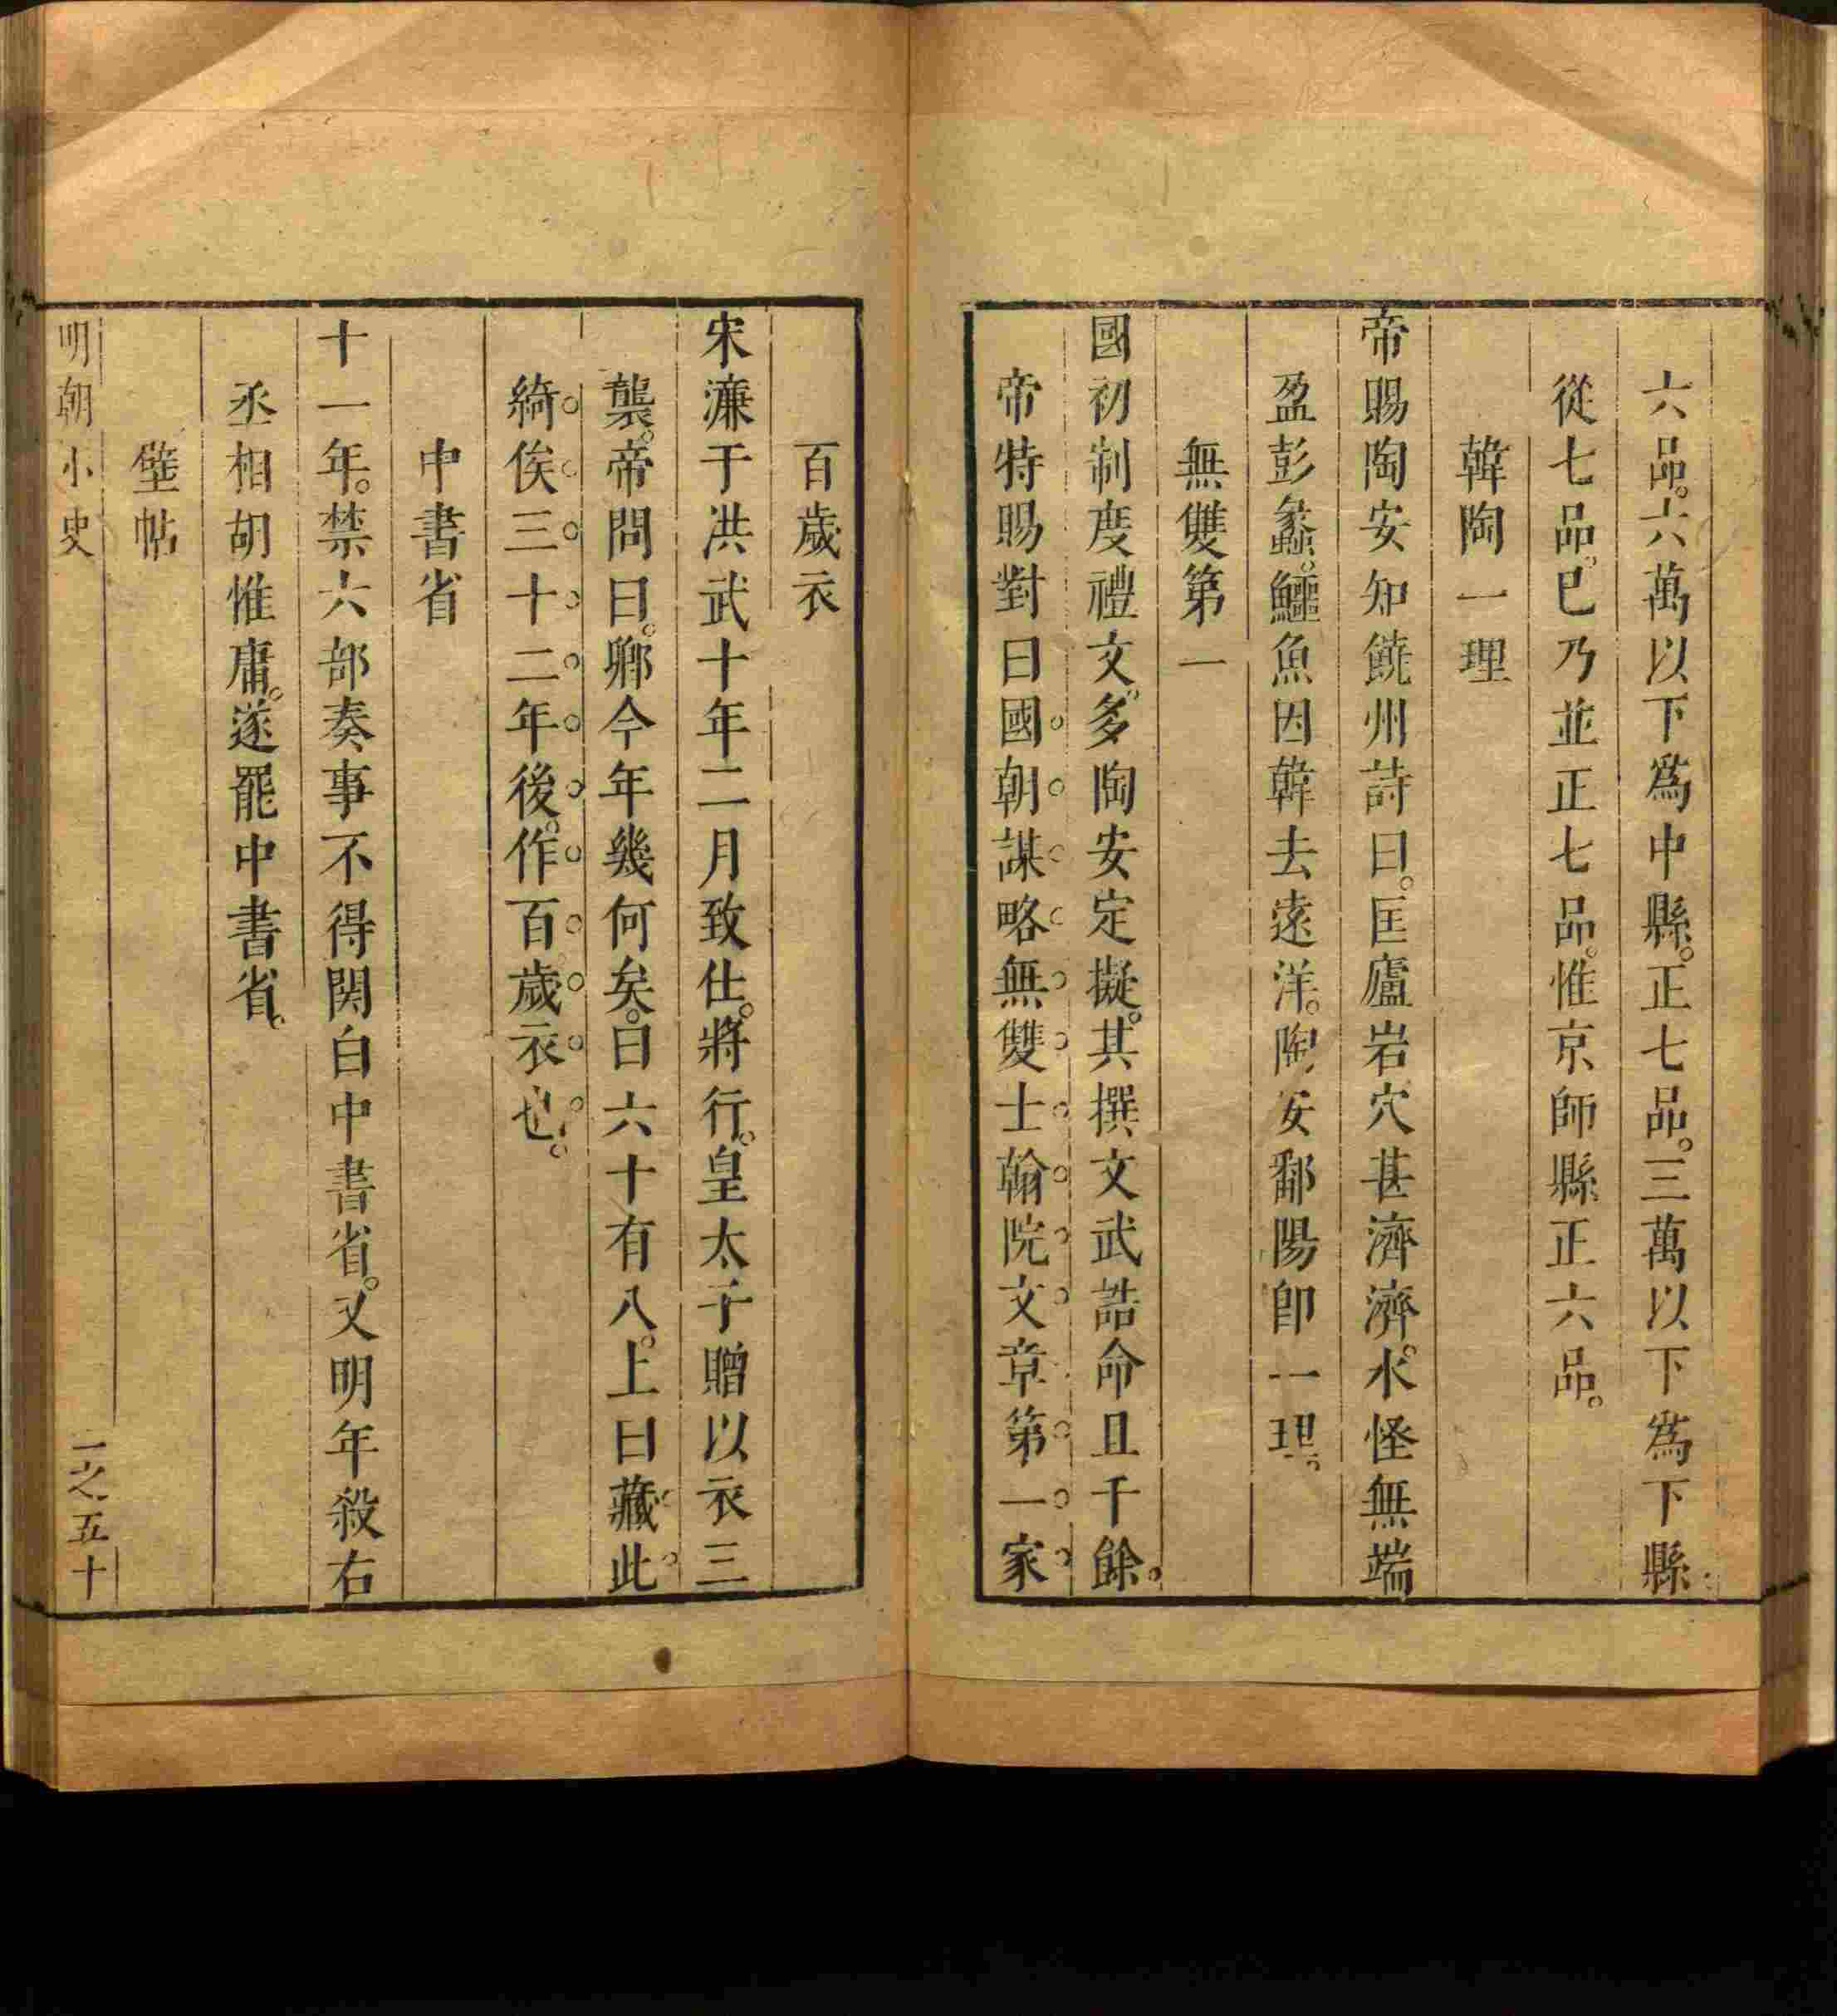 六品。六萬以下爲中縣。正七品。三萬以下爲下縣
從七品。已乃並正七品。惟京師縣正六品。
韓陶一理
帝賜陶安知饒州詩曰。匡廬岩穴甚濟濟。水怪無端
盈彭蠡。鱷魚因韓去遠洋。陶安鄱陽卽一理。
無雙第一
國初制度禮文。多陶安定擬。其撰文武誥命且千餘。
帝特賜對曰國朝謀略無雙士翰院文章第一家
百歲衣
宋濂于洪武十年二月致仕。將行。皇太子贈以衣三
襲。帝問曰。卿今年幾何矣。曰六十有八。上曰藏此
綺俟三十二年後。作百歲衣也。
中書省
十一年。禁六部奏事不得関白中書省。又明年殺右
丞相胡惟庸。遂罷中書省。
壁帖
明朝小史
一之五十